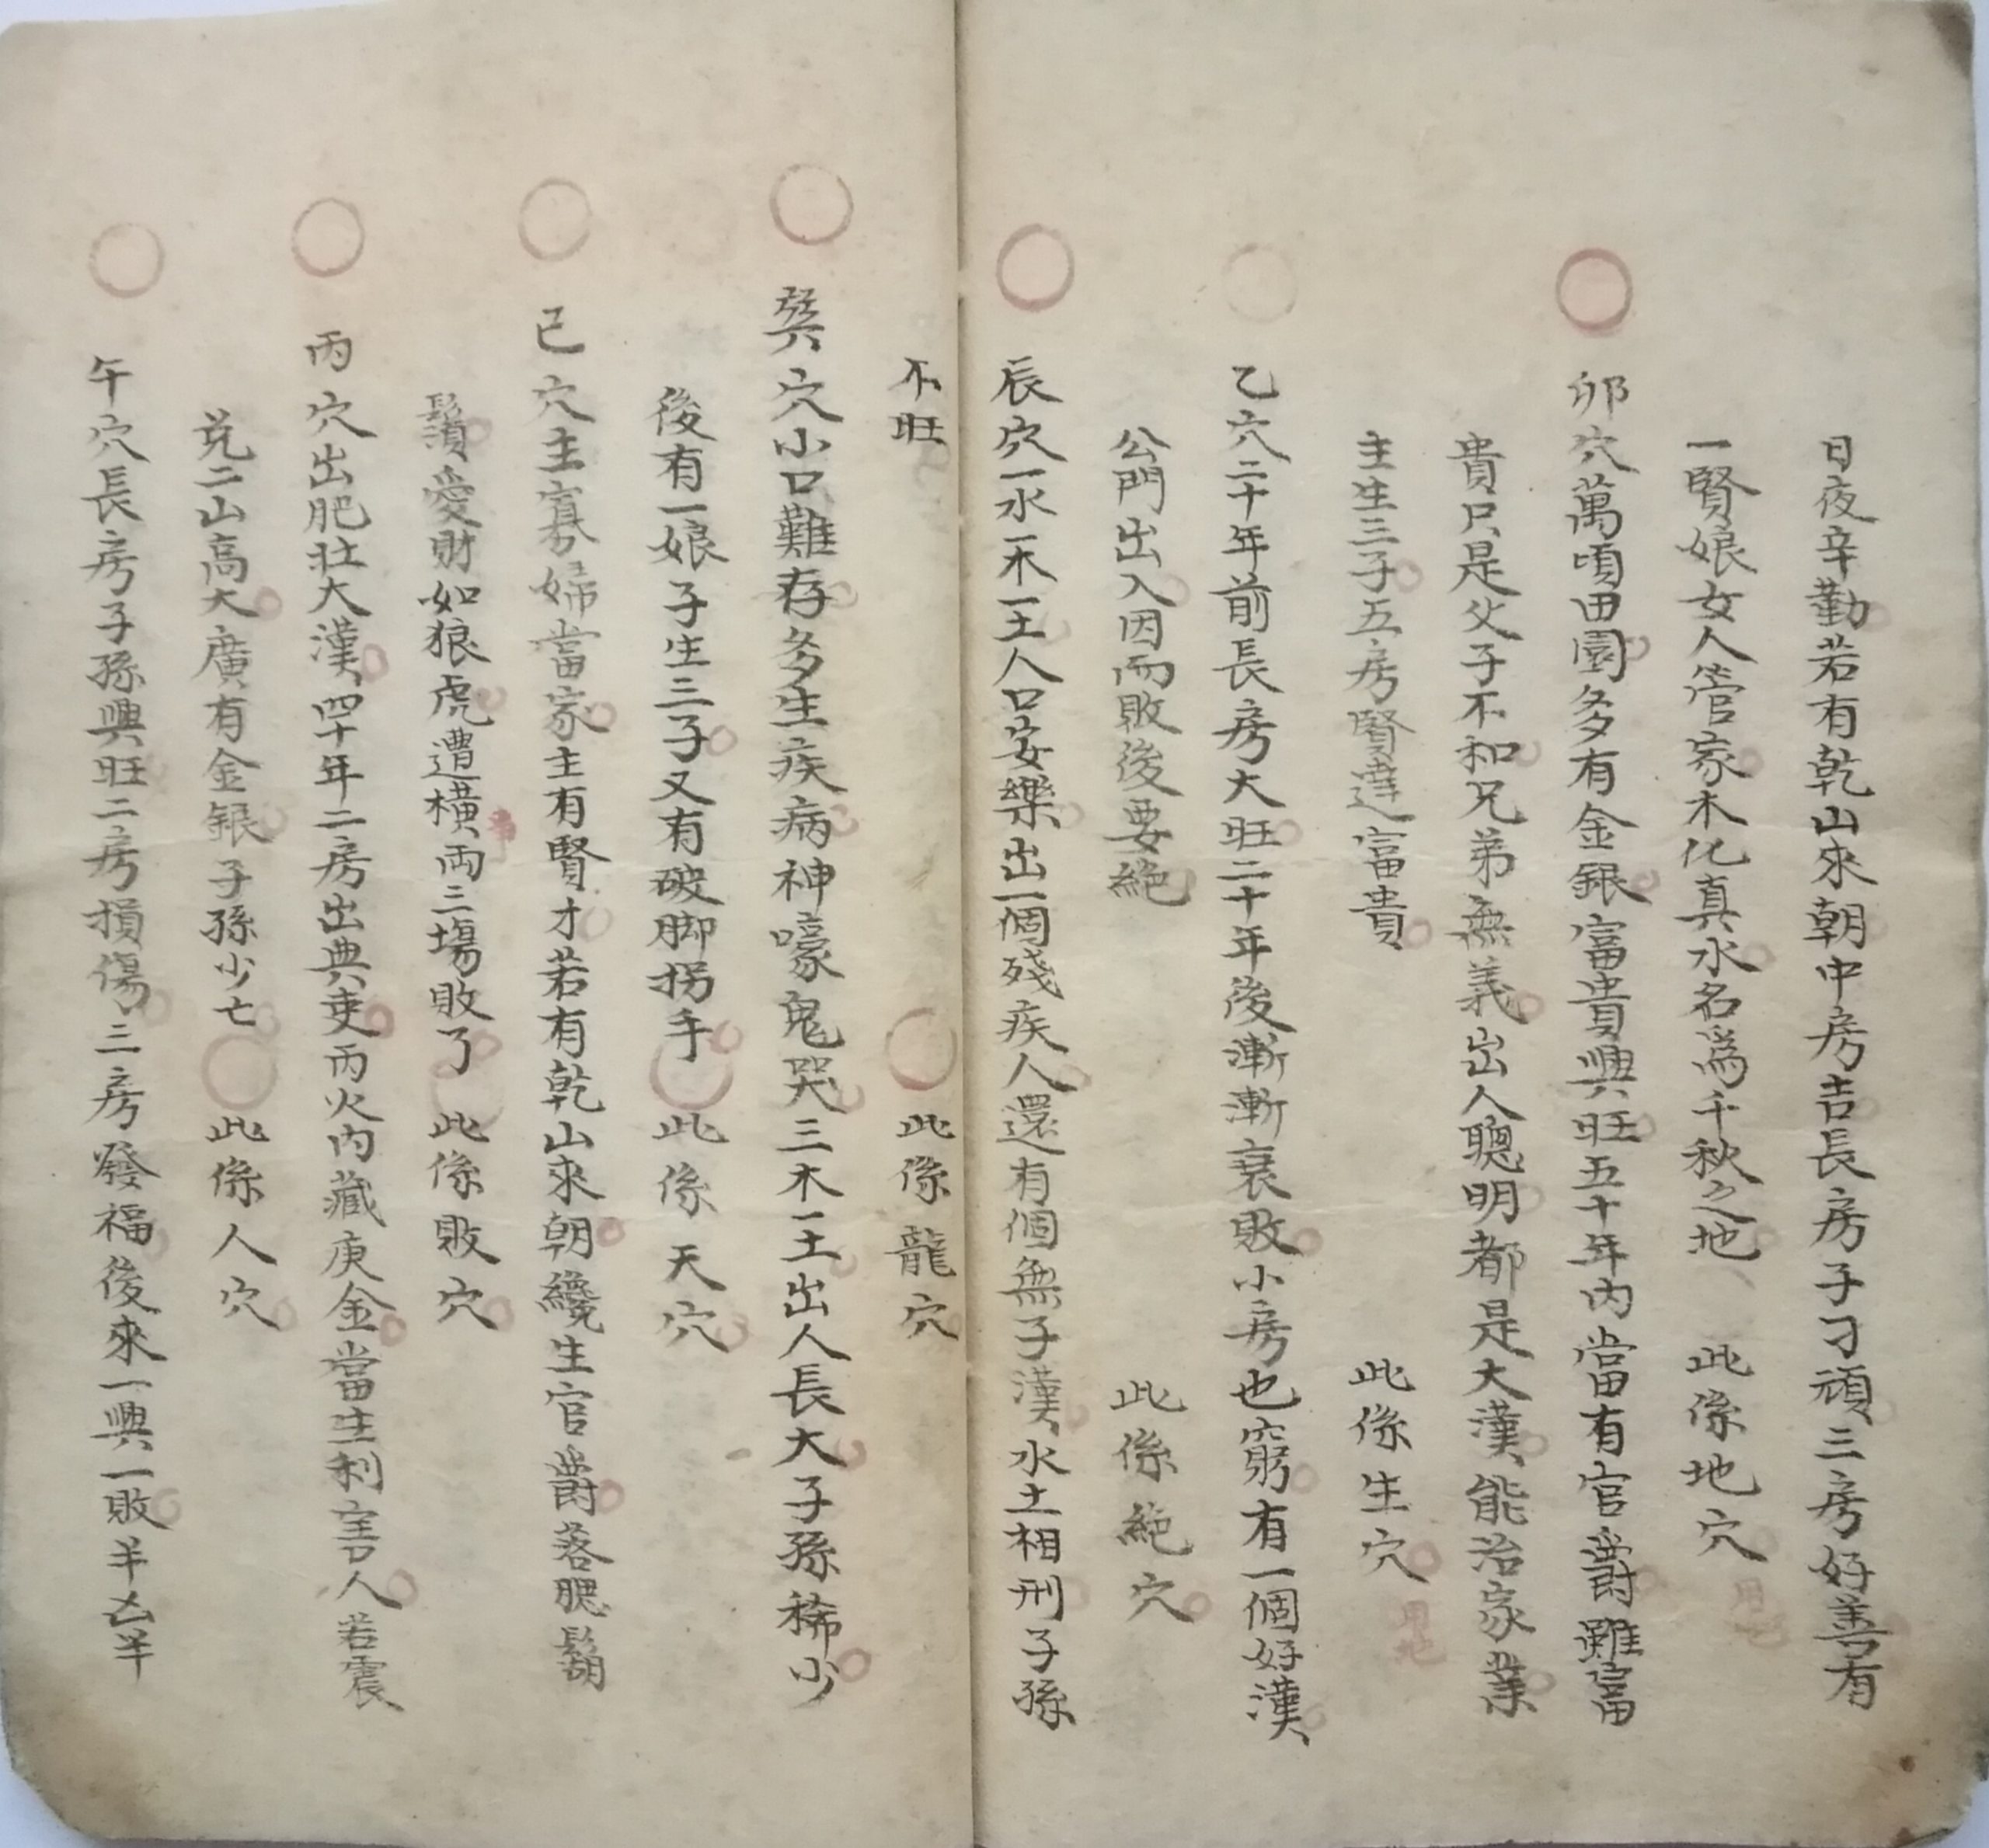 日夜辛勤若有乾山來朝中房吉長房子刁頑三房好善有
一賢娘女人管家木化真水名為千秋之地　此係地穴
卯穴萬頃田園多有金銀富貴興旺五十年內當有官爵雖富
貴只是父子不和兄弟無義出人聰明都是大漢能治家業
主生三子五房賢達富貴　此係生穴
乙穴二十年前長房大旺二十年後漸漸衰敗小房也窮有一個好漢
公門出入因而敗後要絕　此係絕穴
辰穴一水一木一土人口安樂出一個殘疾人還有個無子漢水土相刑子孫
不旺　此係龍穴
巽穴小口難存多生疾病神嚎鬼哭三木一土出人長大子孫稀少
後有一娘子生三子又有破脚拐手　此係天穴
巳穴主寡婦當家主有賢才若有乾山來朝纔生官爵落腮鬍
鬚愛財如狼虎遭橫両三場敗了　此係敗穴
丙穴出肥壯大漢四十年二房出典吏丙火內藏庚金當生利害人若震
兌二山高大廣有金銀子孫少亡　此係人穴
午穴長房子孫興旺二房損傷三房發福後來一興一敗半凶半